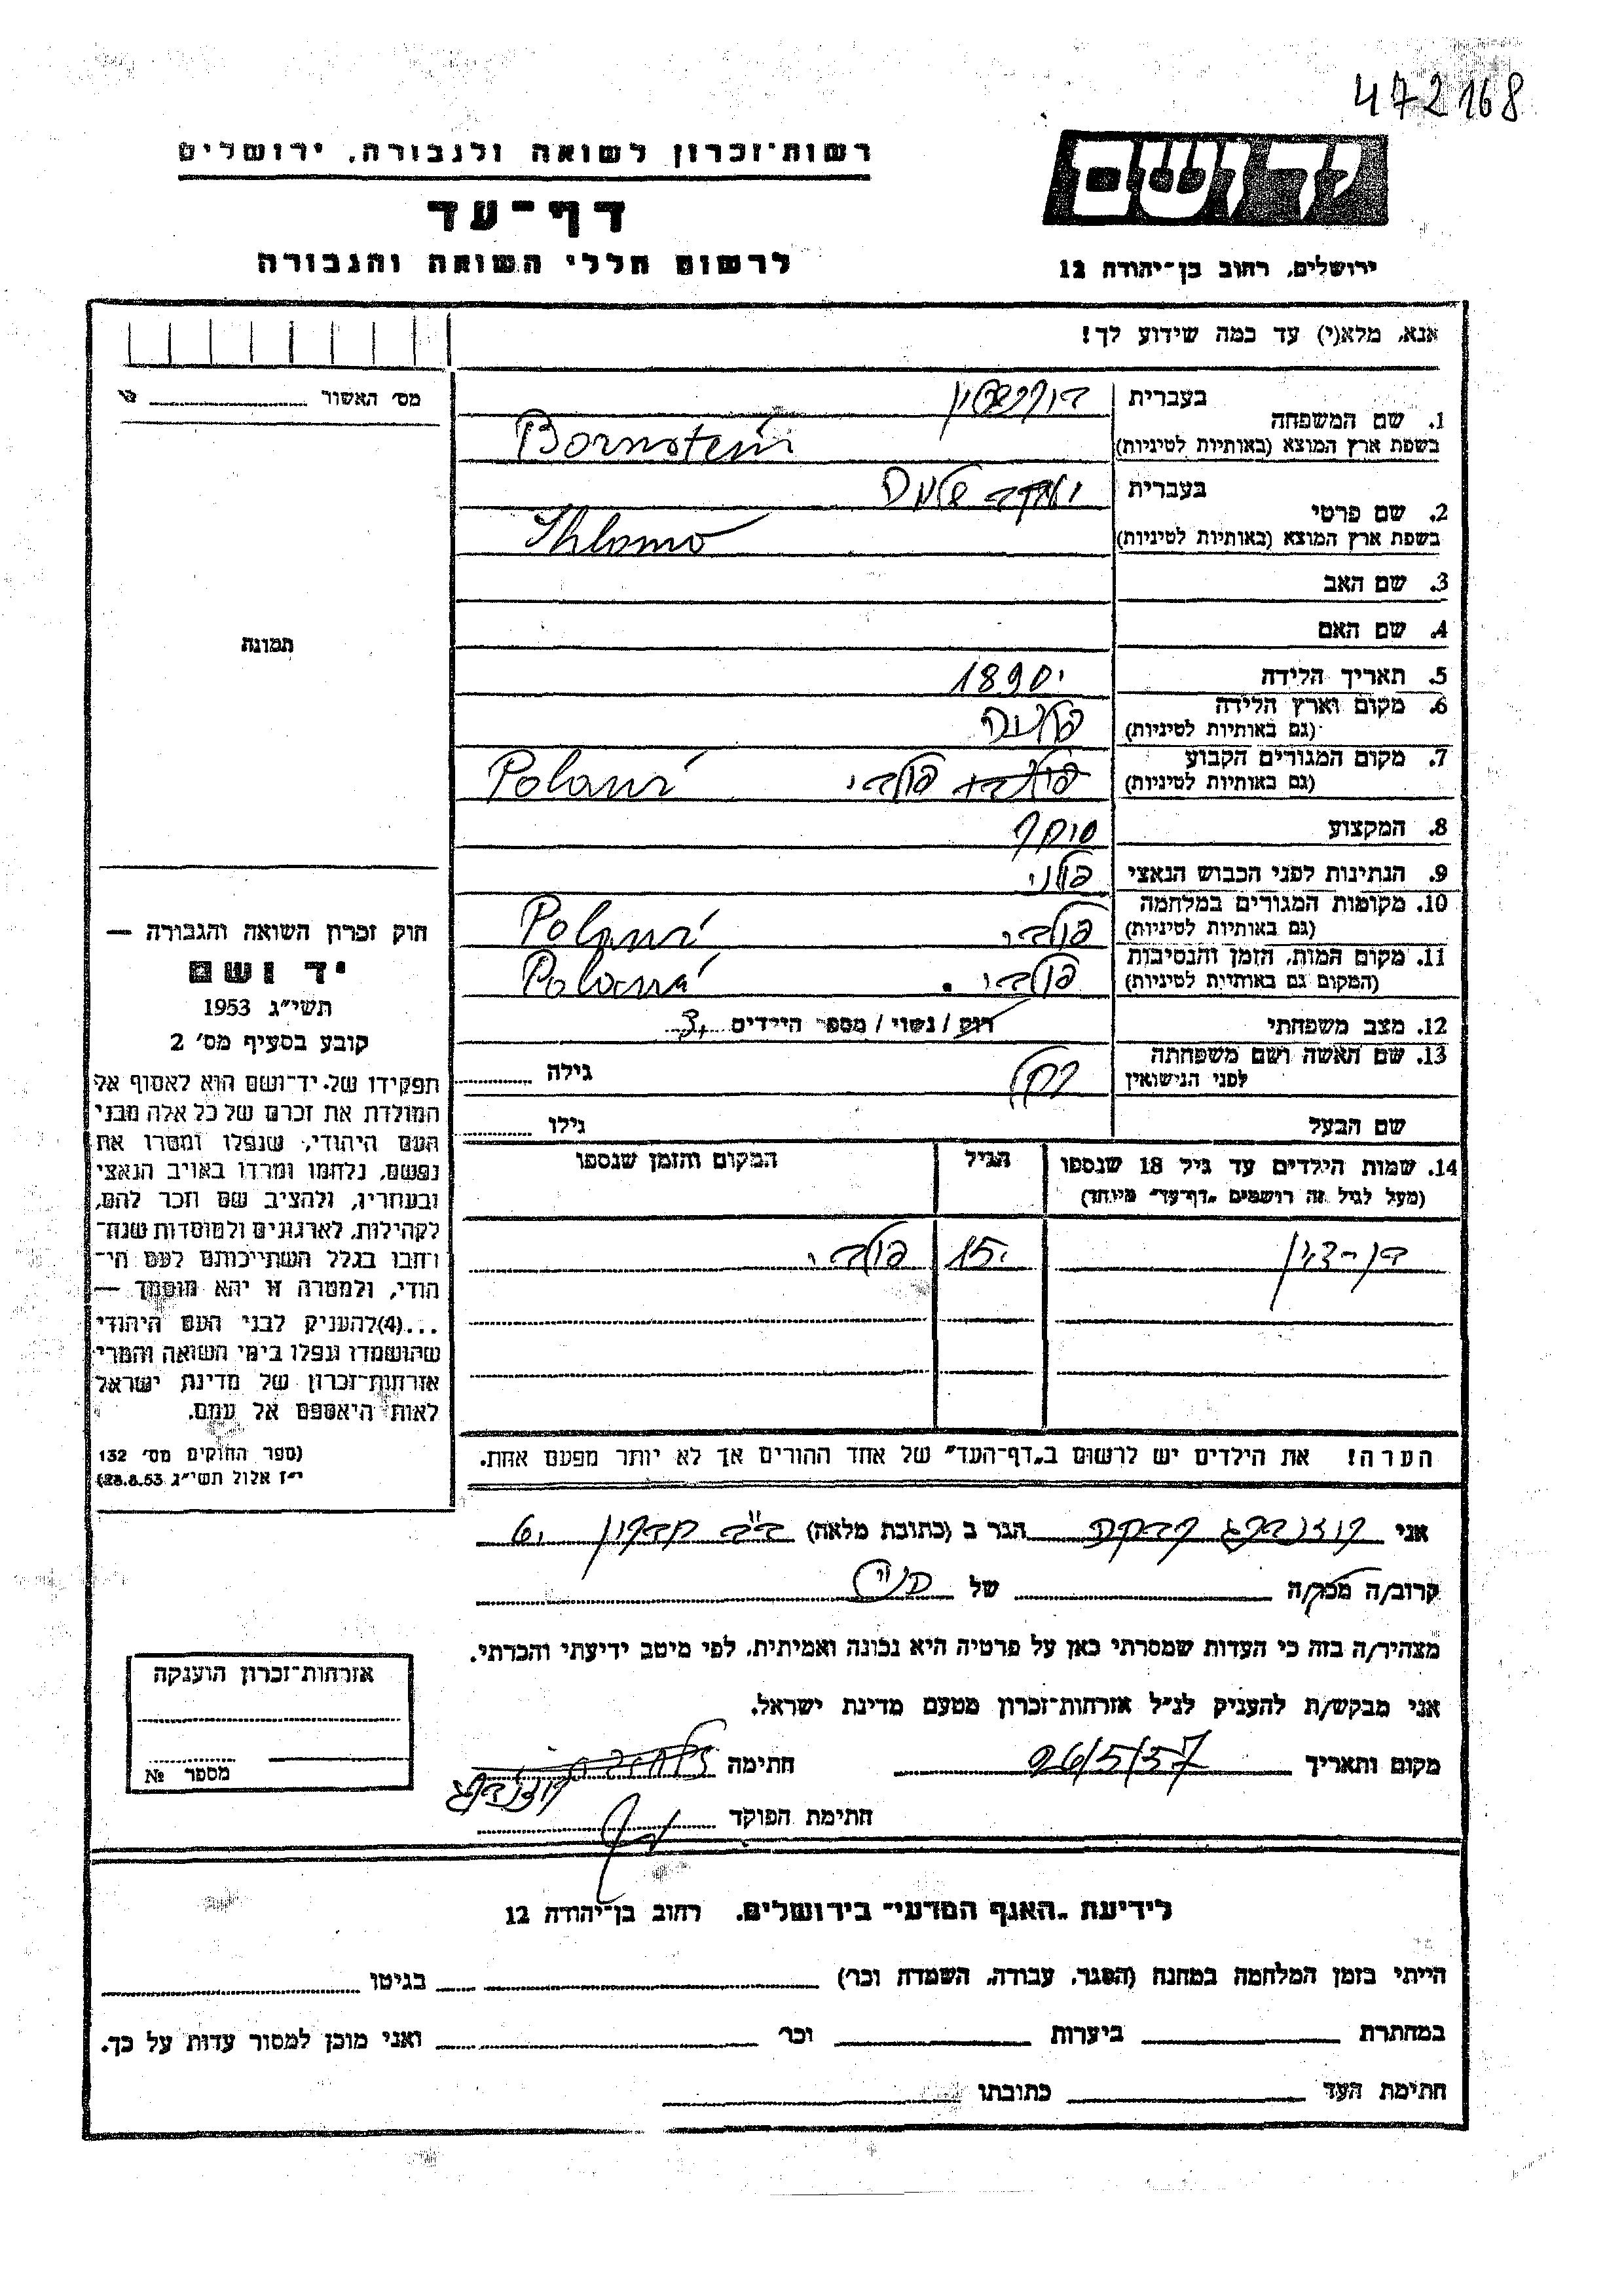 472168
רשות־זכרון לשואה ולגבורה, ירושלים
יד ושם
דף־עד
לרשום חללי השואה והגבורה
ירושלים, רחוב בן־יהודה 12
אנא, מלא(י) עד כמה שידוע לך!
מס׳ האשור
1. שם המשפחה
בעברית בורנשטיין
בשפת ארץ המוצא (באותיות לטיניות) Bornstein
2. שם פרטי
בעברית שלמה
בשפת ארץ המוצא (באותיות לטיניות) Shlomo
3. שם האב
4. שם האם
5. תאריך הלידה 1890
6. מקום וארץ הלידה
(גם באותיות לטיניות)
7. מקום המגורים הקבוע
(גם באותיות לטיניות)
8. המקצוע סוחר
9. הנתינות לפני הכבוש הנאצי פולני
10. מקומות המגורים במלחמה
(גם באותיות לטיניות)
11. מקום המות, הזמן והנסיבות
(המקום גם באותיות לטיניות)
12. מצב משפחתי רווק / נשוי / מספר הילדים 3
13. שם האשה ושם משפחתה
לפני הנישואין רחל גילה
שם הבעל גילו
14. שמות הילדים עד גיל 18 שנספו הגיל המקום והזמן שנספו
(מעל לגיל זה רושמים "דף־עד" מיוחד)
בן־ציון 15
הערה! את הילדים יש לרשום ב"דף־העד" של אחד ההורים אך לא יותר מפעם אחת.
תמונה
חוק זכרון השואה והגבורה —
יד ושם
תשי״ג 1953
קובע בסעיף מס׳ 2
תפקידו של יד־ושם הוא לאסוף אל
המולדת את זכרם של כל אלה מבני
העם היהודי, שנפלו ומסרו את
נפשם, נלחמו ומרדו באויב הנאצי
ובעוזריו, ולהציב שם וזכר להם,
לקהילות, לארגונים ולמוסדות שנח־
רחבו בגלל השתייכותם לעם הי־
הודי, ולמטרה זו יהא מוסמך —
...(4)להעניק לבני העם היהודי
שהושמדו ונפלו בימי השואה והמרי
אזרחות־זכרון של מדינת ישראל
לאות היאספם אל עמם.
(ספר החוקים מס׳ 132
י״ז אלול תשי״ג 28.8.53)
אני רוזנברג רבקה הגר ב (כתובת מלאה)
קרוב/ה מכר/ה של
מצהיר/ה בזה כי העדות שמסרתי כאן על פרטיה היא נכונה ואמיתית, לפי מיטב ידיעתי והכרתי.
אני מבקש/ת להעניק לנ״ל אזרחות־זכרון מטעם מדינת ישראל.
מקום ותאריך 26/5/57 חתימה רוזנברג
חתימת הפוקד
אזרחות־זכרון הוענקה
מספר №
לידיעת "האגף המדעי" בירושלים, רחוב בן־יהודה 12
הייתי בזמן המלחמה במחנה (הסגר, עבודה, השמדה וכר׳) בגיטו
במחתרת ביערות וכר׳ ואני מוכן למסור עדות על כך.
חתימת העד כתובתו